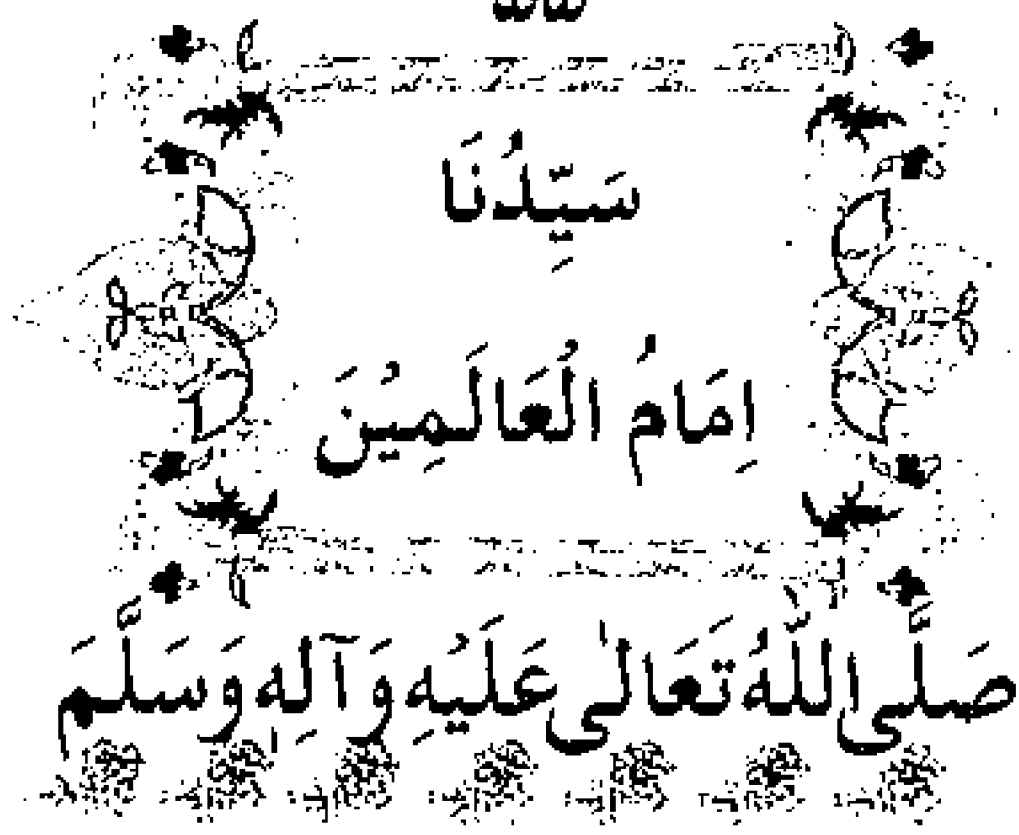 سَيِّدُنَا
اِمَامُ الْعَالَمِيْنَ
صَلَّى اللّٰهُ تَعَالٰى عَلَيْهِ وَآلِهٖ وَسَلَّمَ